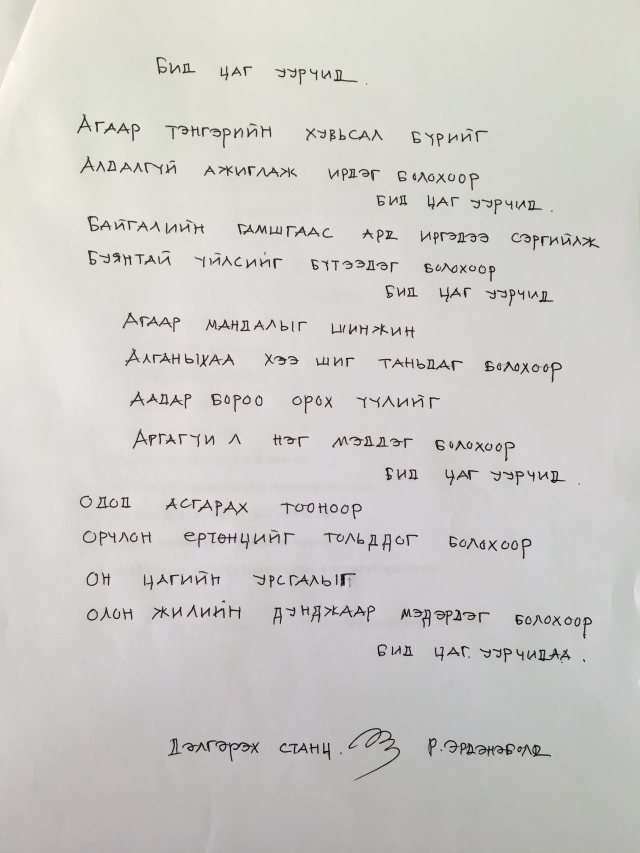 БИД ЦАГ УУРЧИД.
АГААР ТЭНГЭРИЙН ХУВЬСАЛ БҮРИЙГ
АЛДАЛГҮЙ АЖИГЛАЖ ИРДЭГ БОЛОХООР
БИД ЦАГ УУРЧИД.
БАЙГАЛИЙН ГАМШГААС АРД ИРГЭДЭЭ СЭРГИЙЛЖ
БУЯНТАЙ ҮЙЛСИЙГ БҮТЭЭДЭГ БОЛОХООР
БИД ЦАГ УУРЧИД
АГААР МАНДАЛЫГ ШИНЖИН
АЛГАНЫХАА ХЭЭ ШИГ ТАНЬДАГ БОЛОХООР
ААДАР БОРОО ОРОХ ҮҮЛИЙГ
АРГАГҮИ Л НЭГ МЭДДЭГ БОЛОХООР
БИД ЦАГ УУРЧИД.
ОДОД АСГАРАХ ТООНООР
ОРЧЛОН ЕРТӨНЦИЙГ ТОЛЬДДОГ БОЛОХООР
ОН ЦАГИЙН УРСГАЛЫГ
ОЛОН ЖИЛИЙН ДУНДЖААР МЭДЭРДЭГ БОЛОХООР
БИД ЦАГ. УУРЧИДАА.
ДЭЛГЭРЭХ СТАНЦ. Р.ЭРДЭНЭБОЛД